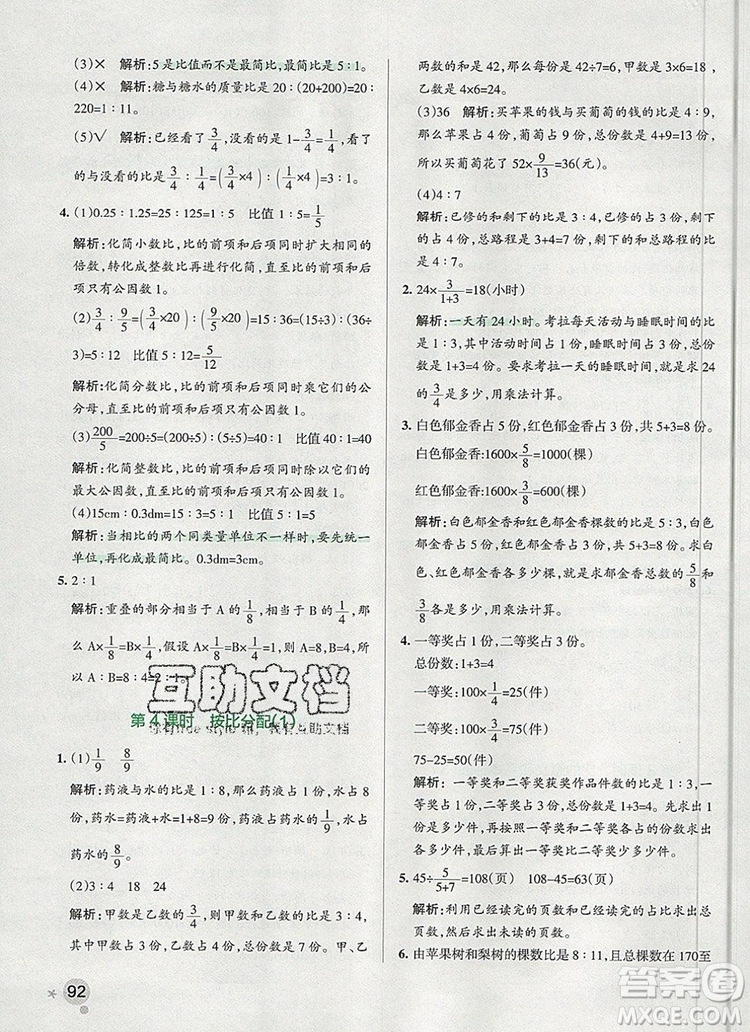 (3)× 解析:5是比值而不是最简比,最简比是5∶1。
(4)× 解析:糖与糖水的质量比是20∶(20+200)=20∶
220=1∶11。
(5)√ 解析:已经看了3/4,没看的是1-3/4=1/4,看了
的与没看的比是3/4∶1/4=(3/4×4)∶(1/4×4)=3∶1。
4. (1)0.25∶1.25=25∶125=1∶5 比值1∶5=1/5
解析:化简小数比,比的前项和后项同时扩大相同的
倍数,转化成整数比再进行化简,直至比的前项和后
项只有公因数1。
(2)3/4∶9/5=(3/4×20)∶(9/5×20)=15∶36=(15÷3)∶(36
÷3)=5∶12 比值5∶12=5/12
解析:化简分数比,比的前项和后项同时乘它们的公
分母,直至比的前项和后项只有公因数1。
(3)200/5=(200÷5)∶(5÷5)=40∶1 比值40∶1=40
解析:化简整数比,比的前项和后项同时除以它们的
最大公因数,直至比的前项和后项只有公因数1。
(4)15cm∶0.3dm=15∶3=5∶1 比值5∶1=5
解析:当相比的两个同类量单位不一样时,要先统一
单位,再化成最简比。0.3dm=3cm。
5. 2∶1
解析:重叠的部分相当于A的1/8,相当于B的1/4,那
么A×1/8=B×1/4,假设A×1/8=B×1/4=1,则A=8,B=4,所
以A∶B=8∶4=2∶1。
互助文档
第4课时 按比分配(1)
1. (1)1/9 8/9
解析:药液与水的比是1∶8,那么药液占1份,水占8
份,药水=药液+水=1+8=9份,药液占药水的1/9,水占
药水的8/9。
(2)3∶4 18 24
解析:甲数是乙数的3/4,则甲数和乙数的比是3∶4,
其中甲数占3份,乙数占4份,总份数是7份。甲、乙
两数的和是42,那么每份是42÷7=6,甲数是3×6=18,
乙数是4×6=24。
(3)36 解析:买苹果的钱与买葡萄的钱的比是4∶9,
那么苹果占4份,葡萄占9份,总份数是4+9=13份,
所以买葡萄花了52×9/13=36(元)。
(4)4∶7
解析:已修的和剩下的比是3∶4,已修的占3份,剩下
的占4份,总路程是3+4=7份。剩下的和总路程的比
是4∶7。
2. 24×3/(1+3)=18(小时)
解析:一天有24小时。考拉每天活动与睡眠时间的比是
1∶3,其中活动时间占1份,睡眠时间占3份,总时间占
1+3=4份。要求考拉一天的睡眠时间,就是要求24
的3/4是多少,用乘法计算。
3. 白色郁金香占5份,红色郁金香占3份,共5+3=8份。
白色郁金香:1600×5/8=1000(棵)
红色郁金香:1600×3/8=600(棵)
解析:白色郁金香和红色郁金香棵数的比是5∶3,白色
郁金香占5份,红色郁金香占3份,郁金香总数占5+3=8
份。求白色郁金香和红色郁金香的棵数,就是求1600棵
的5/8和3/8各是多少,用乘法计算。
4. 一等奖占1份,二等奖占3份。
总份数:1+3=4
一等奖:100×1/4=25(件)
二等奖:100×3/4=75(件)
75-25=50(件)
解析:一等奖和二等奖获奖作品件数的比是1∶3,一
等奖占1份,二等奖占3份,总份数是1+3=4。先求出1
份是多少件,再求出一等奖和二等奖分别是多少件,
最后算出一等奖比二等奖少多少件。
5. 45÷5/(5+7)=108(页) 108-45=63(页)
解析:利用已经读完的页数和页数之比,先求出总页
数,然后求出未读的页数。
6. 由苹果树和梨树的棵数比是8∶11,且总棵数在170至
92
答案圈
MXQE.COM